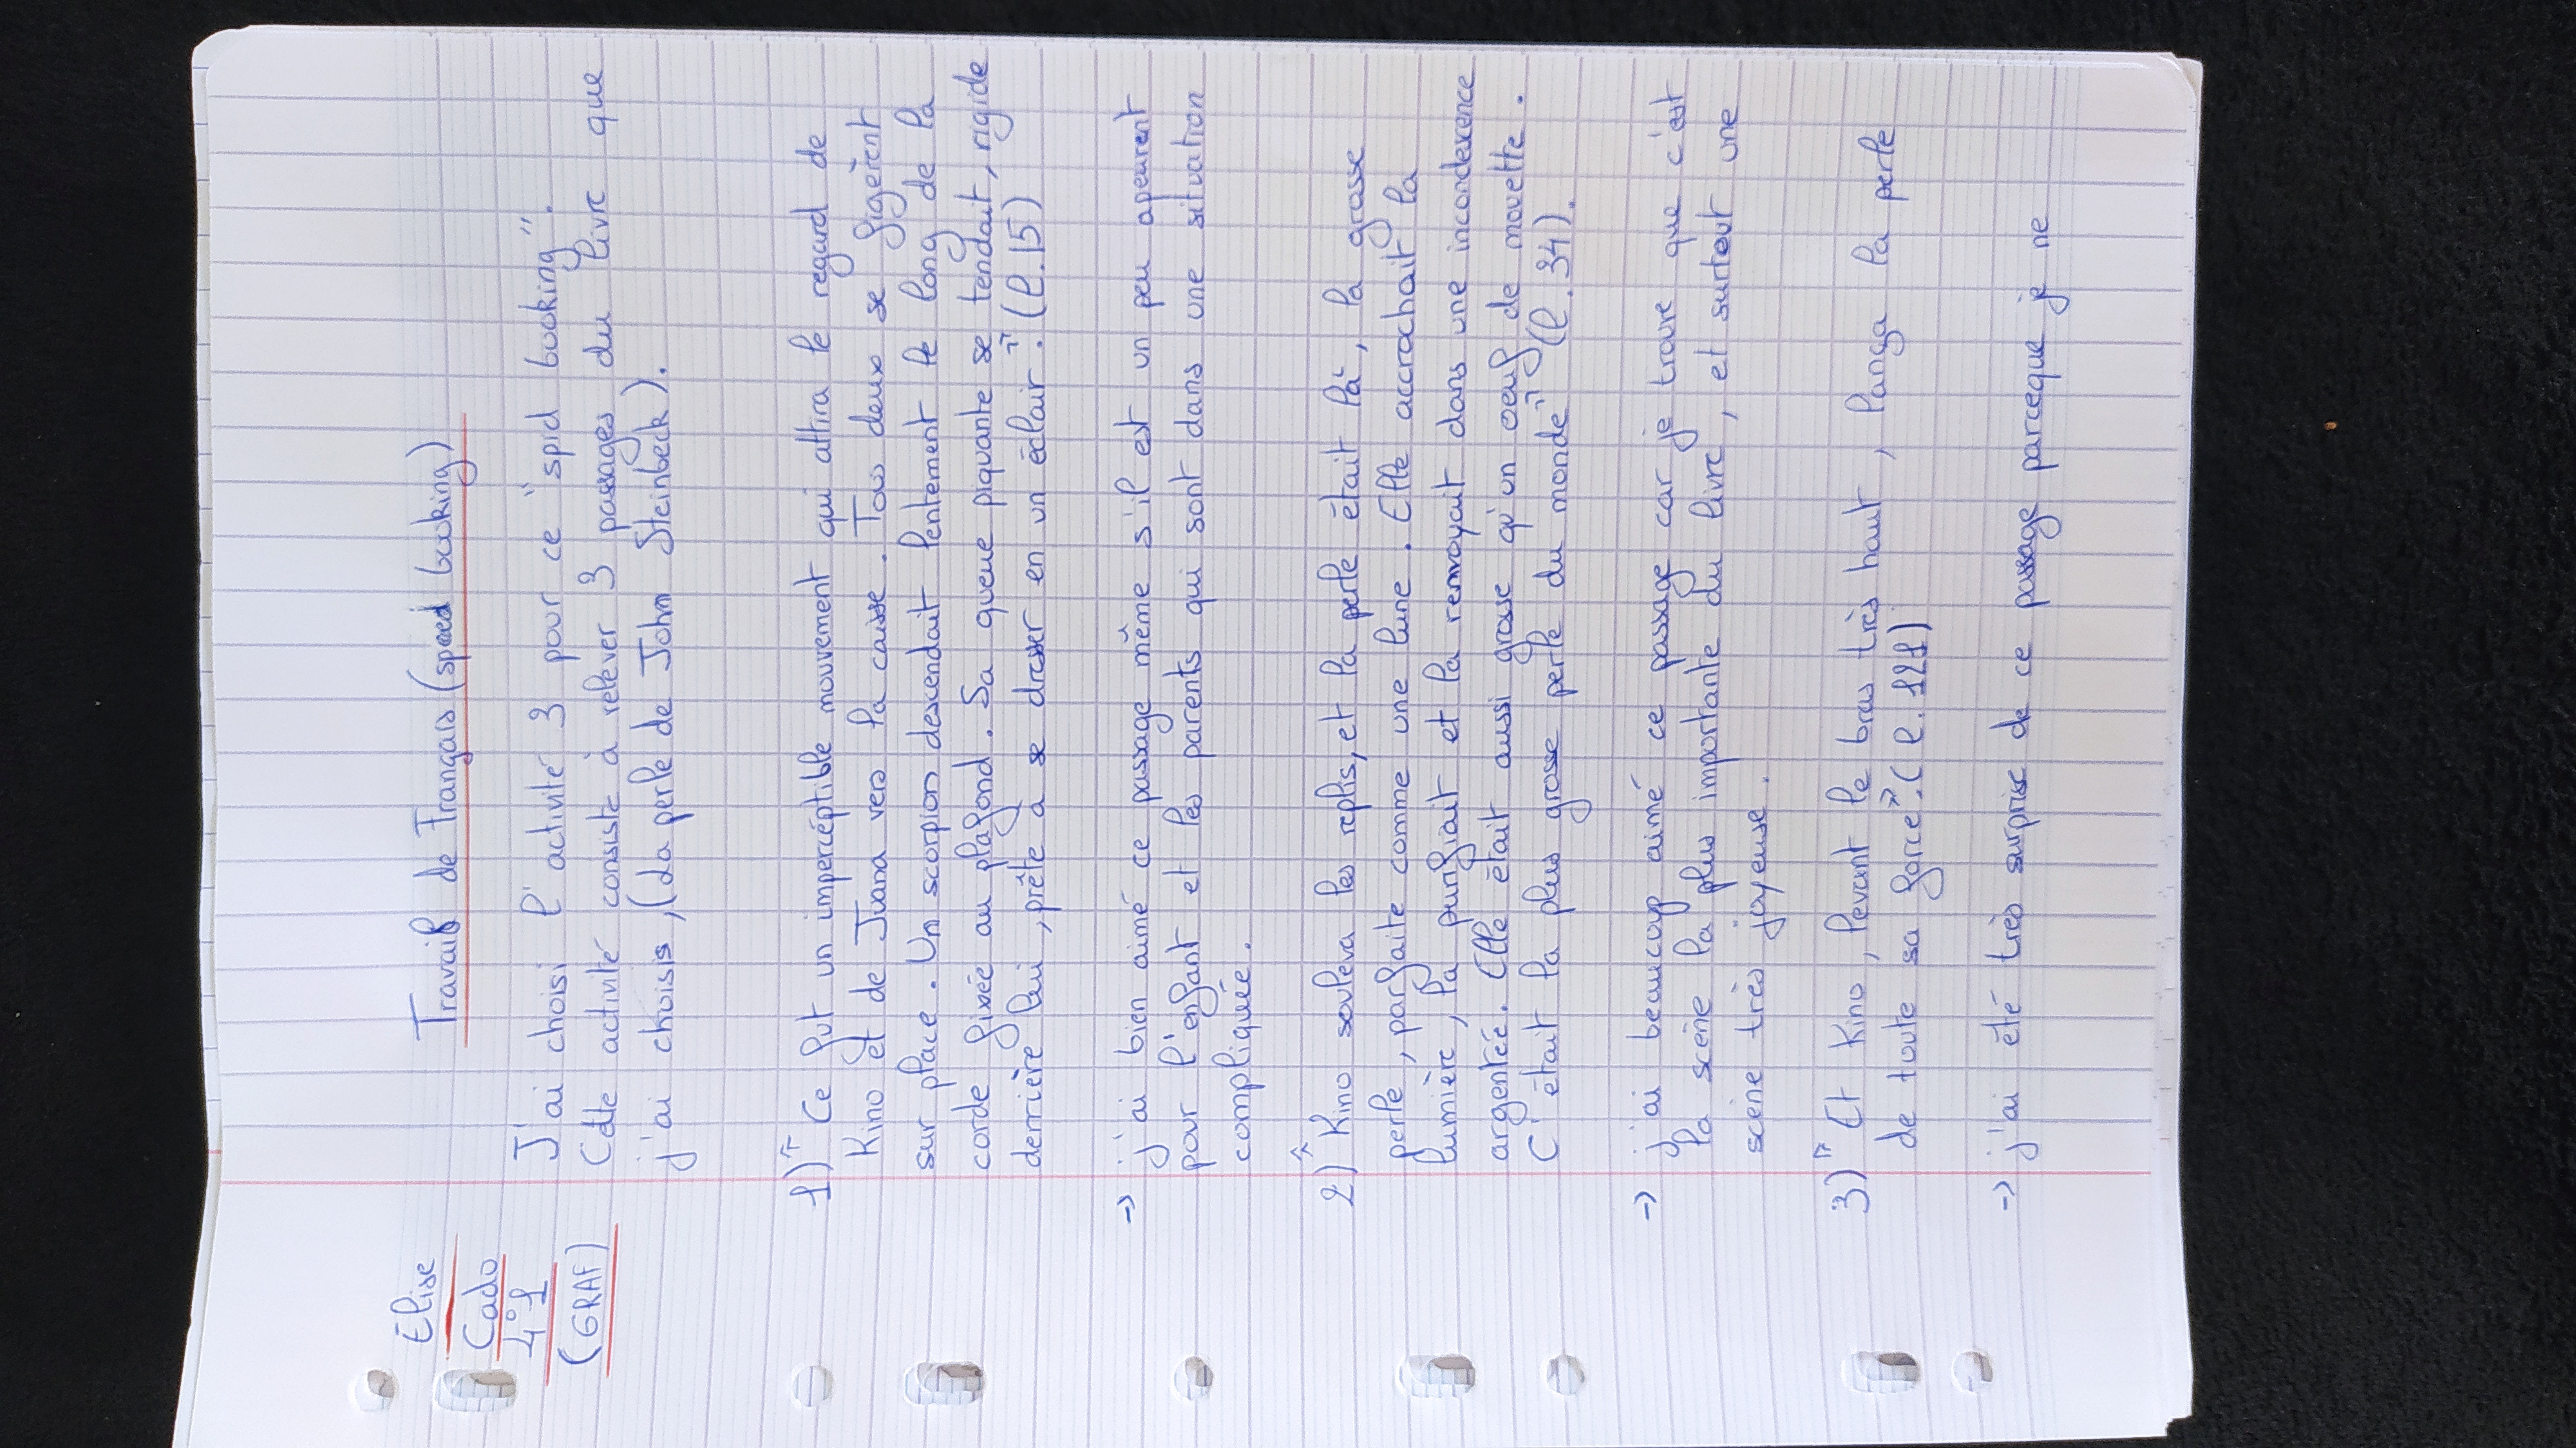 Elise
Cado
4°1
(GRAF)
Travail de Français (speed booking)
J'ai choisi l'activité 3 pour ce "spid booking".
Cette activité consiste à relever 3 passages du livre que
j'ai choisis, (La perle de John Steinbeck).
1) " Ce fut un impercéptible mouvement qui attira le regard de
Kino et de Juana vers la caisse. Tous deux se figèrent
sur place. Un scorpion descendait lentement le long de la
corde fixée au plafond. Sa queue piquante se tendait, rigide
derrière lui, prête a se dresser en un éclair". (l.15)
-> j'ai bien aimé ce passage même s'il est un peu apeurent
pour l'enfant et les parents qui sont dans une situation
compliquée.
2) " Kino souleva les replis, et la perle était là, la grosse
perle, parfaite comme une lune. Elle accrochait la
lumière, la purifiait et la renvoyait dans une incandescence
argentée. Elle était aussi grosse qu'un oeuf de mouette.
C'était la plus grosse perle du monde" (l.34).
-> j'ai beaucoup aimé ce passage car je trouve que c'est
la scène la plus importante du livre, et surtout une
scène très joyeuse.
3) " Et Kino, levant le bras très haut, lança la perle
de toute sa force". (l.121)
-> j'ai été très surprise de ce passage parceque je ne